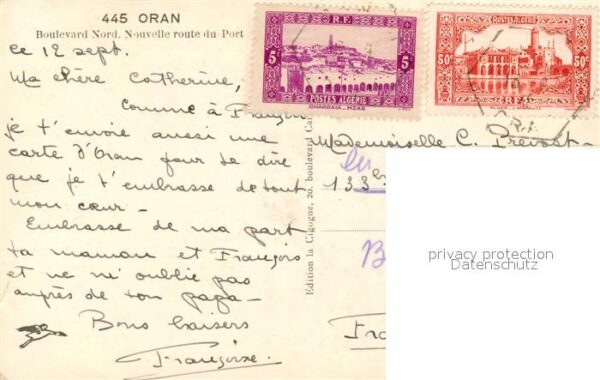 445 ORAN
Boulevard Nord. Nouvelle route du Port
ce 12 sept.
Ma chère Catherine,
Comme à François
je t'envoie aussi une
carte d'Oran pour te dire
que je t'embrasse de tout
mon cœur -
Embrasse de ma part
ta maman et François
et ne m'oublie pas
auprès de ton papa -
Bons baisers
Françoise.
Edition la Cigogne, 20, boulevard
5c R.F. 5c
POSTES ALGERIE
GHARDAIA - MZAB
POSTES ALGERIE
50c 50c
R.F.
Mademoiselle C. Prevost -
133
privacy protection
Datenschutz